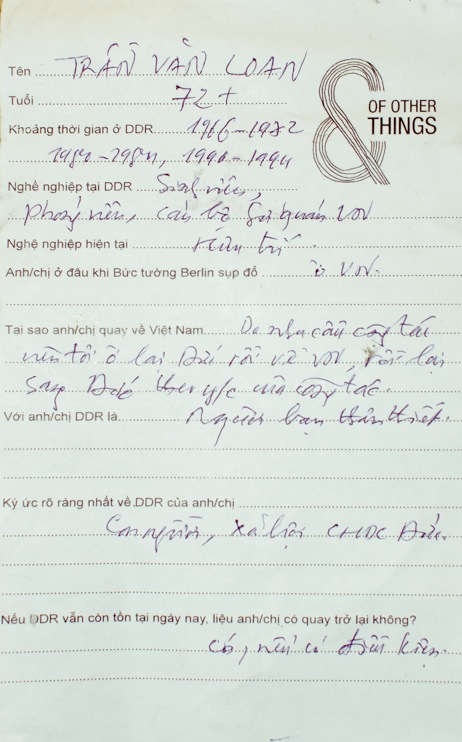 Tên TRẦN VĂN LOAN
Tuổi 72+
& OF OTHER THINGS
Khoảng thời gian ở DDR 1966-1972
1990-1994
Nghề nghiệp tại DDR Sinh viên,
phóng viên, cán bộ sứ quán VN
Nghệ nghiệp hiện tại Hưu trí.
Anh/chị ở đâu khi Bức tường Berlin sụp đổ ở VN.
Tại sao anh/chị quay về Việt Nam Do nhu cầu công tác
nên tôi ở lại Đức rồi về VN, rồi lại
sang Đức theo y/c của công tác.
Với anh/chị DDR là Người bạn thân thiết.
Ký ức rõ ràng nhất về DDR của anh/chị
Con người, xã hội CHDC Đức.
Nếu DDR vẫn còn tồn tại ngày nay, liệu anh/chị có quay trở lại không?
có, nếu có điều kiện.